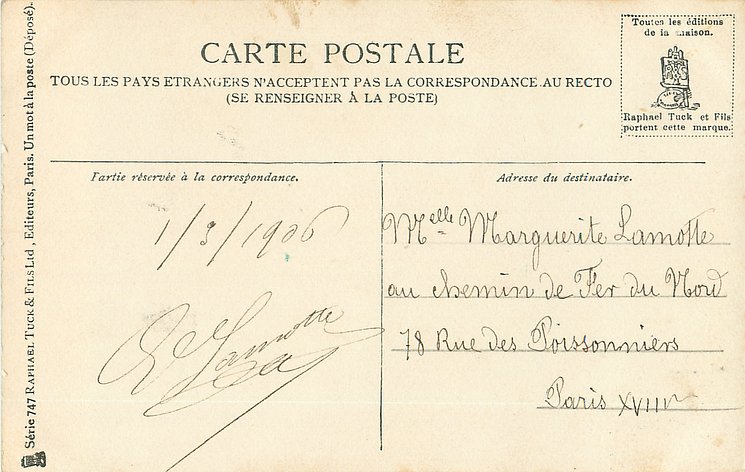 Toutes les éditions
de la maison.
Raphael Tuck et Fils
portent cette marque.
CARTE POSTALE
TOUS LES PAYS ETRANGERS N'ACCEPTENT PAS LA CORRESPONDANCE AU RECTO
(SE RENSEIGNER À LA POSTE)
Partie réservée à la correspondance.
1/3/1906
Lamotte
Adresse du destinataire.
Melle Marguerite Lamotte
au chemin de Fer du Nord
78 Rue des Poissonniers
Paris XVIII
Série 747 RAPHAEL TUCK & FILS Ltd, Editeurs, Paris. Un mot à la poste (Déposé).